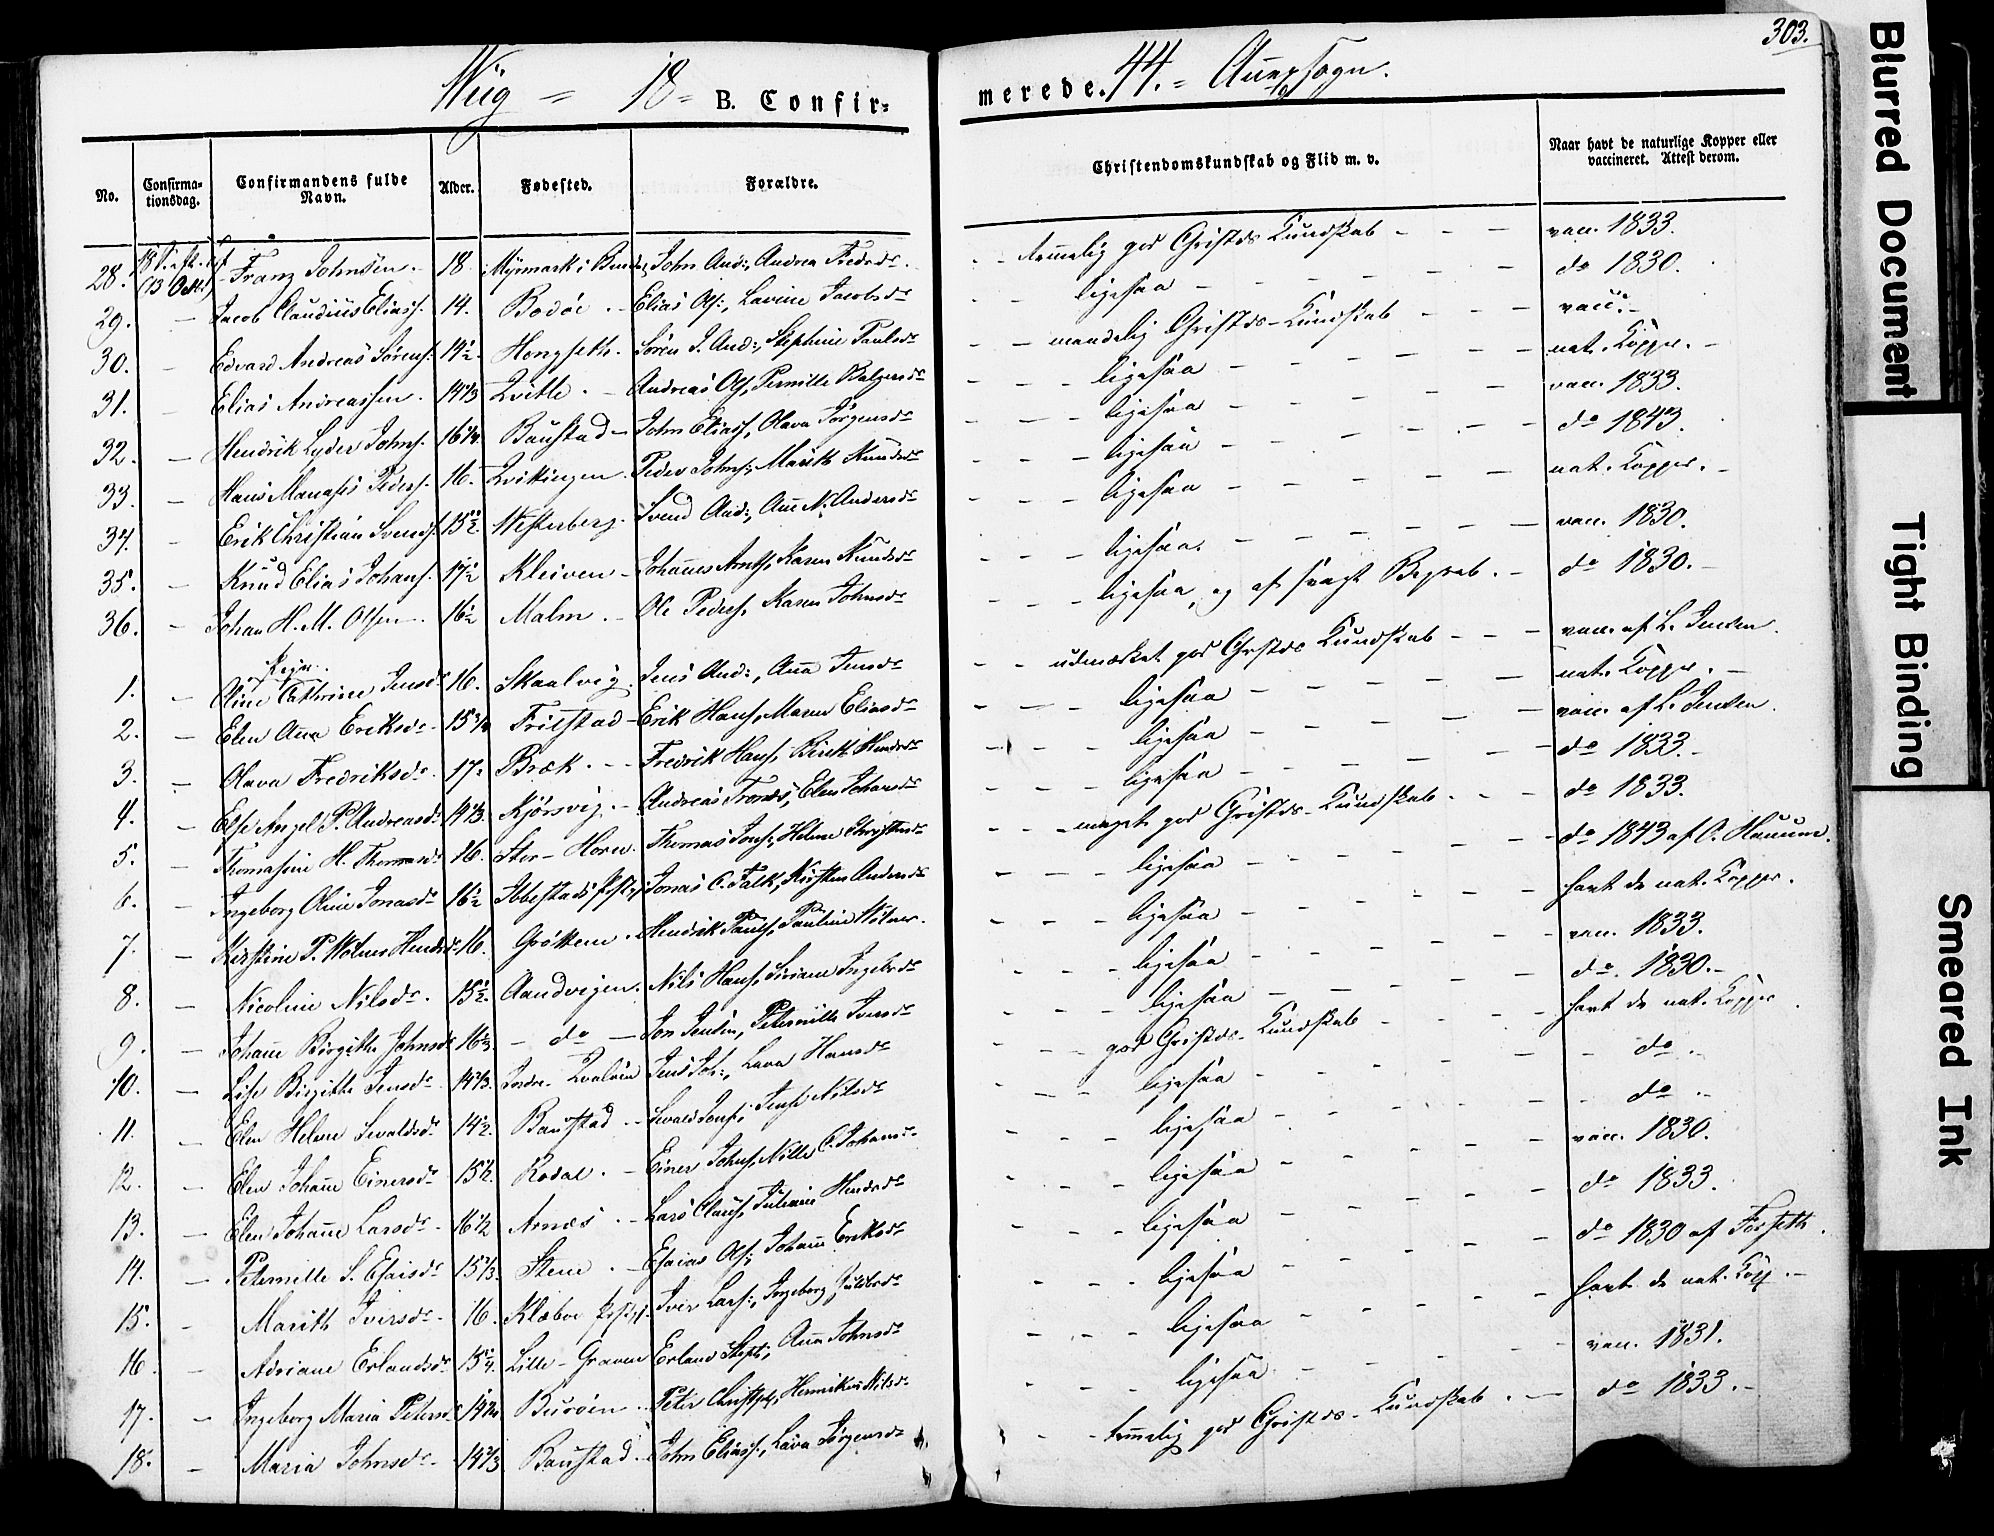 303.
18 B. Confir=
merede. 44. = Sogn.
No. Confirma-tionsdag. Confirmandens fulde Navn. Alder. Fødested. Forældre. Christendomskundskab og Flid m. v. Naar havt de naturlige Kopper eller vaccineret. Attest derom.
28. (13 Octbr) Franz Johnsen. 18 John And:, Andrea temmelig god Christds Kundskab - - - vacc. 1833.
29. — Jacob Claudius Eliass. 14. Bodøe. Elias Ols:, Lavine Jacobsdr - - ligesaa - - do 1830.
30. — Edvard Andreas Sørens. 14½. Hongseth. Søren J. And:, Stephine Paulsdr - - maadelig Christds-Kundskab - - - vacc. -
31. — Elias Andreassen. 14⅓ Andreas Ols, Pernille - - ligesaa - - nat. Kopper. -
32. — Hendrik Lyder Johns. 16¼. Baustad - John Eliass, Olava Jørgensdr - - ligesaa - - vacc. 1833.
33. — Hans Manases Peders. 16. Peder Johns, Marith Knudsdr - - ligesaa - - do 1843.
34. - Erik Christian Svends. 15½. Westerberg. Svend And:, Ane N. Andersdr - - ligesaa - - nat. Kopper. -
35. - Knud Elias Johans. 17½ Kleiven - Johannes Karen Knudsdr - - ligesaa. - - vacc. 1830.
36. - Johan H. M. Olsen. 16½ Malm. - Ole Peders, Karen Johnsdr - - ligesaa, og af svagt Begreb. - do 1830. -
Piger.
1. — Oline Cathrine Jensdr 16. Skaalvig. Jens And:, Ana Jensdr - - udmærket god Christds Kundskab - - - vacc. af L. Jensen.
2. — Elen Ana Eriksdr 15¾ Fristad - Erik Hans, Maren Eliasdr - - ligesaa - - nat. Kopper. -
3. — Olava Fredriksdr. 17. Bræk. - - Fredrik Hans, - - ligesaa - - vacc. af L. Jensen.
4. — Else Angel P. Andreasdr 14⅓. Kjørsvig. - Andreas Elen Johansdr - - ligesaa - - do 1833. -
5. — Thomasine H. Thomasdr 16. Stor-Horn. Thomas Jens, Helene - - meget god Christds-Kundskab. - - do 1833.
6. — Ingeborg Oline Jonasdr 16½ Ibbestads Jonas C. Falk, Kirsten Andersdr - - ligesaa - - do 1843 af
7. — Kirstine P. Wolner Hendrdr 16. Grøttem. Hendrik Pauls, Pauline Wolner. - - ligesaa - - havt de nat. Kopper.
8. — Nicoline Nilsdr. 15½. Aandvigen. Nils Hans, - - ligesaa - - vacc. 1833.
9. — Johane Birgithe Johnsdr 16⅓. - do - Jon Jensen, Peternille Iversdr - - ligesaa - - do. 1830. -
10. — Lise Birgithe Jensdr 14⅔. Indre- Jens Joh:, Lava Hansdr - - god Christds-Kundskab - - havt de nat. Kopper
11. — Elen Helene Sivaldsdr. 14½. Baustad. - Sivald Jens; Jense Nilsdr - - ligesaa - - do -
12. — Elen Johane Einersdr 15½. Rodal. - Einer Johns, Nille C. Johansdr. - - ligesaa - - do -
13. — Elen Johane Larsdr. 16½ Arnæs. - Lars Claus, Juliane Hendrdr - - ligesaa - - vacc. 1830.
14. — Peternille S. Esaisdr 15⅔. Stene. - Esaias Ols; Johane Eriksdr - - ligesaa - - do 1833.
15. - Marith Iversdr. 16. Klæboe Iver Lars:, Ingeborg - - ligesaa - - do 1830 af Forseth.
16. — Adriane Erlandsdr 15¼. Lille-Graven Erland Ana Johnsdr - - ligesaa - - havt de nat. Kop. -
17. — Ingeborg Maria Petersdr 14¾ Buøen. Peter Henrikke Nilsdr - - ligesaa - - vacc. 1831.
18. — Maria Johnsdr. 14⅔ Baustad. John Eliass., Lava Jørgensdr - - temmelig god Christds-Kundskab. - do 1833. -
Blurred Document
Tight Binding
Smeared Ink